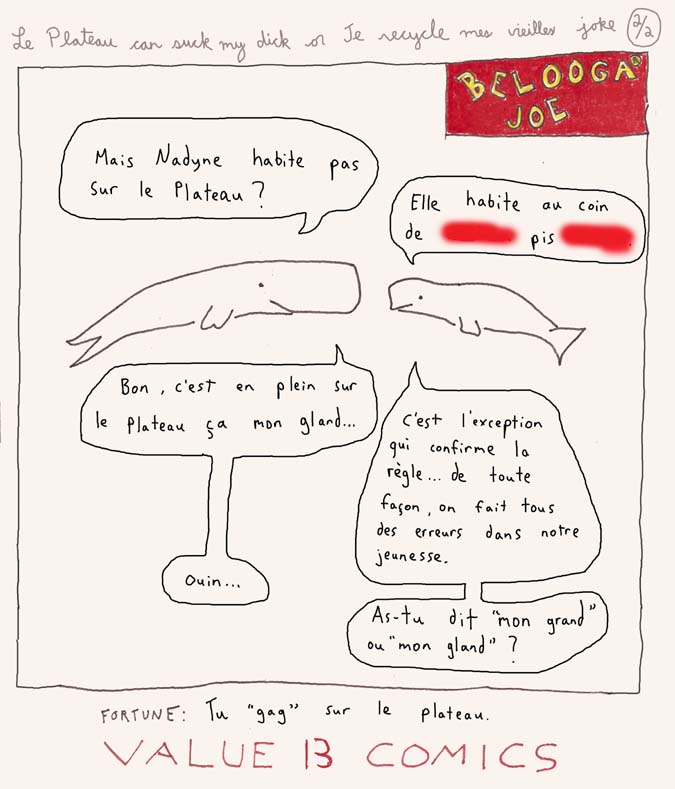 Le Plateau can suck my dick or Je recycle mes vieilles joke 2/2
BELOOGA
JOE
Mais Nadyne habite pas
sur le Plateau ?
Elle habite au coin
de pis
Bon, c'est en plein sur
le plateau ça mon gland...
C'est l'exception
qui confirme la
règle... de toute
façon, on fait tous
des erreurs dans notre
jeunesse.
Ouin...
As-tu dit "mon grand"
ou "mon gland" ?
FORTUNE: Tu "gag" sur le plateau.
VALUE 13 COMICS